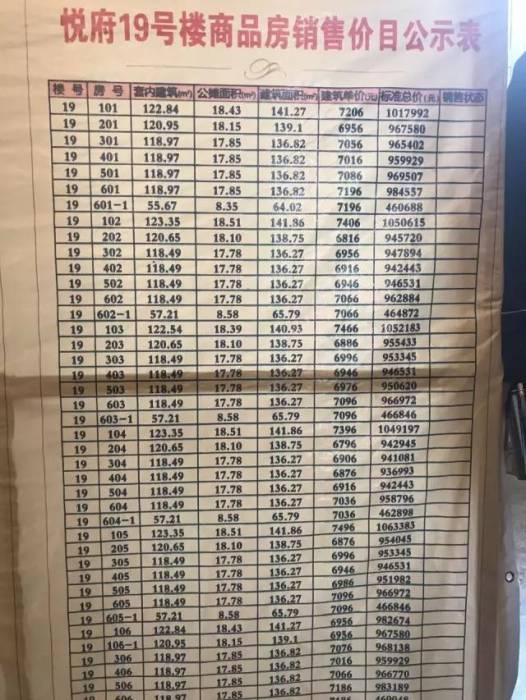 悦府19号楼商品房销售价目公示表
楼号 房号 套内建筑(㎡) 公摊面积(㎡) 建筑面积(㎡) 建筑单价(元) 标准总价(元) 销售状态
19 101 122.84 18.43 141.27 7206 1017992
19 201 120.95 18.15 139.1 6956 967580
19 301 118.97 17.85 136.82 7056 965402
19 401 118.97 17.85 136.82 7016 959929
19 501 118.97 17.85 136.82 7086 969507
19 601 118.97 17.85 136.82 7196 984557
19 601-1 55.67 8.35 64.02 7196 460688
19 102 123.35 18.51 141.86 7406 1050615
19 202 120.65 18.10 138.75 6816 945720
19 302 118.49 17.78 136.27 6956 947894
19 402 118.49 17.78 136.27 6916 942443
19 502 118.49 17.78 136.27 6946 946531
19 602 118.49 17.78 136.27 7066 962884
19 602-1 57.21 8.58 65.79 7066 464872
19 103 122.54 18.39 140.93 7466 1052183
19 203 120.65 18.10 138.75 6886 955433
19 303 118.49 17.78 136.27 6996 953345
19 403 118.49 17.78 136.27 6946 946531
19 503 118.49 17.78 136.27 6976 950620
19 603 118.49 17.78 136.27 7096 966972
19 603-1 57.21 8.58 65.79 7096 466846
19 104 123.35 18.51 141.86 7396 1049197
19 204 120.65 18.10 138.75 6796 942945
19 304 118.49 17.78 136.27 6906 941081
19 404 118.49 17.78 136.27 6876 936993
19 504 118.49 17.78 136.27 6916 942443
19 604 118.49 17.78 136.27 7036 958796
19 604-1 57.21 8.58 65.79 7036 462898
19 105 123.35 18.51 141.86 7496 1063383
19 205 120.65 18.10 138.75 6876 954045
19 305 118.49 17.78 136.27 6996 953345
19 405 118.49 17.78 136.27 6946 946531
19 505 118.49 17.78 136.27 6986 951982
19 605 118.49 17.78 136.27 7096 966972
19 605-1 57.21 8.58 65.79 7096 466846
19 106 122.84 18.43 141.27 6956 982674
19 106-1 120.95 18.15 139.1 6956 967580
19 306 118.97 17.85 136.82 7076 968138
19 406 118.97 17.85 136.82 7016 959929
19 506 118.97 17.85 136.82 7066 966770
19 606 118.97 17.85 136.82 7186 983189